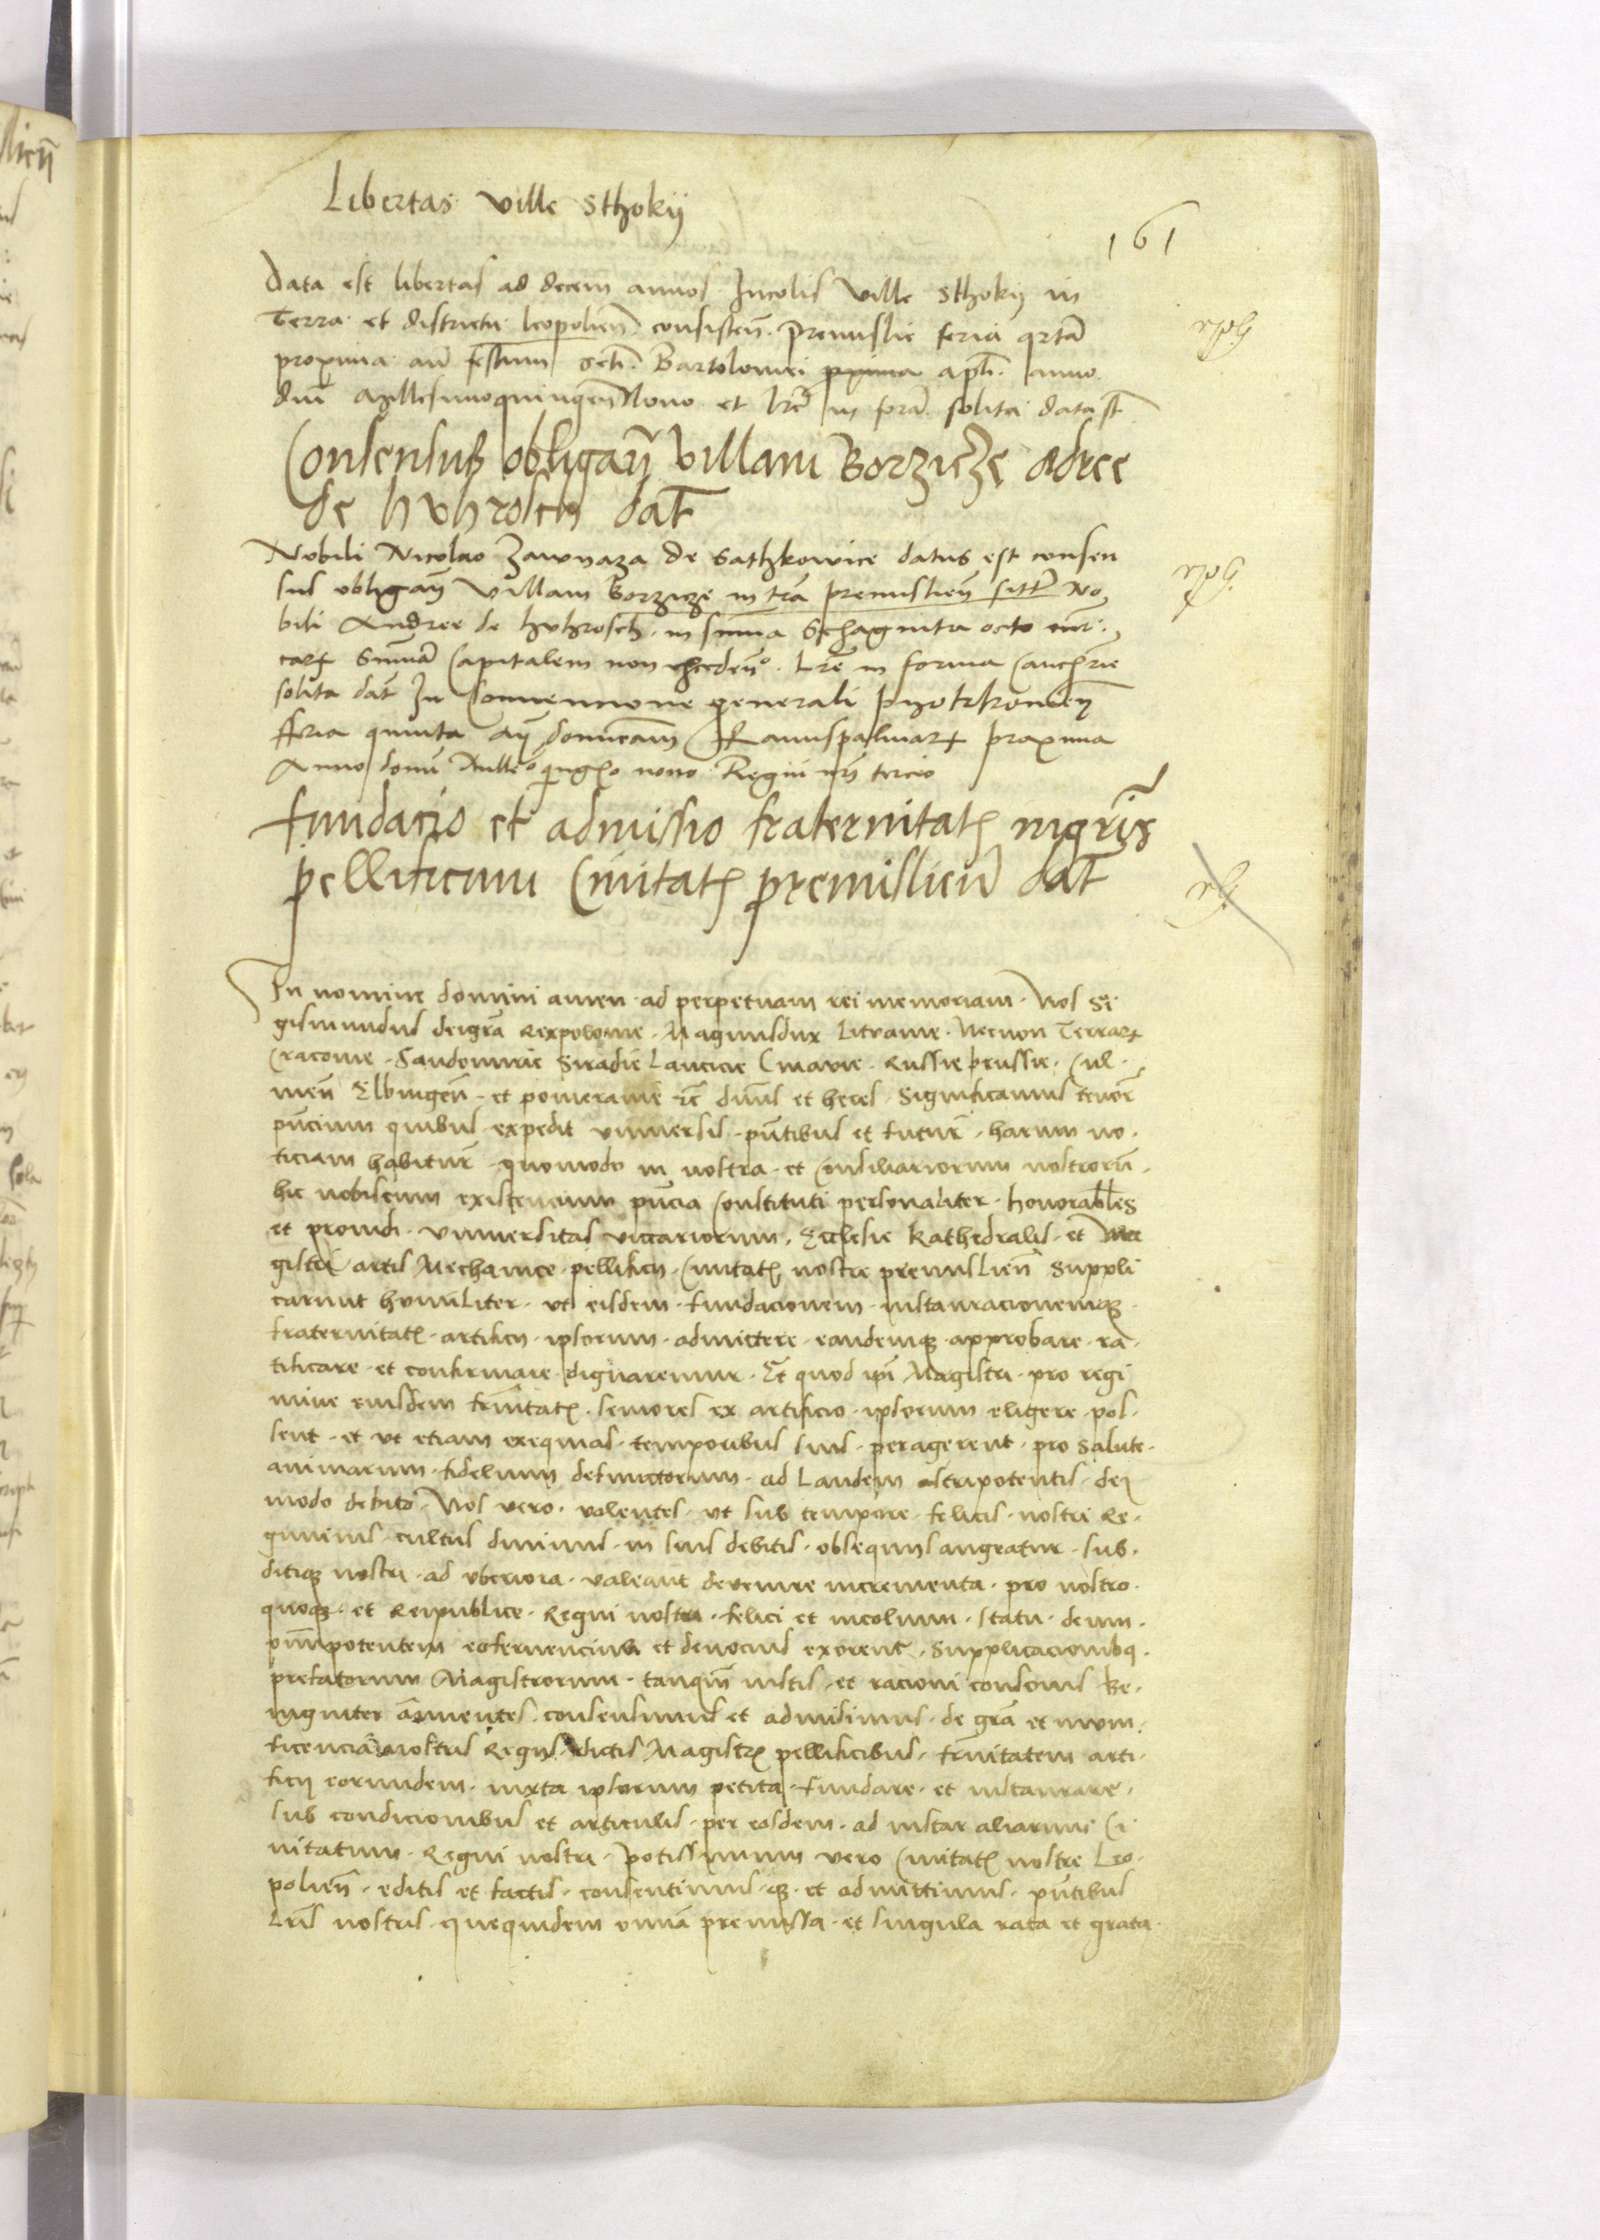 Libertas ville Sthokÿ
161
Data est libertas ad decem annos Incolis ville Sthoky in
Terra et districtu leopolien̄ consisteñ. Premislie feria qrta
proxima añ festum scti. Bartolomei apłi. anno
dni Millesimoquingen Nono et lrē in forā solita data st̄
Consensus obligan̄ villam Borzicze Adree
de hvhrosch dat̄
Nobili Nicolao de Sathkowice datus est consen
sus obligan̄ villam Borzicze in trā premislien̄ sitā No
bili Andree de hvhrosch in sūma Sexaginta octo mr̄
carꝝ Summā Capitalem non excedeñ. Lrē in forma Cancrie
solita dat̄ In Convencione generali pyotrkowien̄
feria quinta an̄ dominicam Ramispalmarꝝ proxima
Anno domī Milleº qingº nono Regni nr̄i tercio
fundacio et admissio fraternitatꝭ
pellificum Civitatꝭ premislien̄ dat̄
In nomine domini amen ad perpetuam rei memoriam. Nos Si
gismundus deigrā Rexpolonie. Magnusdux Litvanie. Necnon Terrarꝝ
Cracovie. Sandomirie Siradie Lancicie Cuiavie. Russie prussie. Cul
meñ Elbingeñ. et pomeranie ⁊c̄ dn̄us et heres. Significamus tenor̄
pn̄cium quibus expedit universis. pn̄tibus et futur̄. harum no
ticiam habitur̄. quomodo in nostra et Consiliariorum nostrorū
hic nobiscum existencium pn̄cia Constituti personaliter. honorabl̄es
et providi. Universitas viccariorum. Ecclesie Kathedralis. et Ma
gistri artis Mechanice pellificij. Civitatꝭ nostre premislien̄ Suppli
carunt humiliter. ut eisdem. fundacionem. instauracionemqꝫ
fraternitatꝭ. artificij. ipsorum. admittere. eandemqꝫ approbare. ra
tificare. et confirmare dignaremur. Et quod ipī Magistri. pro regi
mine eiusdem frn̄itatꝭ. seniores ex artificio. ipsorum eligere. pos
sent. et ut etiam exequias. temporibus suis. peragerent. pro salute.
animarum. fidelium defunctorum. ad Laudem Astripotentis. dei
modo debito. Nos vero. volentes. ut sub tempore felicis. nostri Re
giminis. cultus divinus. in suis debitis. obsequijs augeatur. sub
ditiqꝫ nostri. ad uberiora. valeant devenire incrementa. pro nostro
quoqꝫ. et Reipublice. Regni nostri. felici et incolumi. statu. deum
omīpotentem eo fervencius et devocius exorent. Supplicacionibq
prefatorum Magistrorum. tanqm̄ iustis. et racioni consonis Be
nigniter añuentes. consensimus et admisimus. de grā et muni
ficencia nostris Regijs. dictis Magistrꝭ pellificibus. frn̄itatem arti
ficij eorundem. iuxta ipsorum petita. fundare. et instaurare.
sub condicionibus et articulis. per eosdem. ad instar aliarum Ci
vitatum. Regni nostri. potissimum vero Civitatꝭ nostre Leo
polien̄. editis et factis. consentimus. qꝫ. et admittimus. pn̄tibus
Lrīs nostris. quequidem omīa premissa. et singula rata et grata.